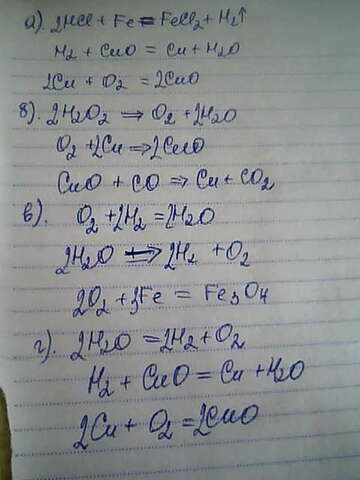 а). 2HCl + Fe = FeCl2 + H2↑
H2 + CuO = Cu + H2O
2Cu + O2 = 2CuO
б). 2H2O2 ⇒ O2 + 2H2O
O2 + 2Cu ⇒ 2CuO
CuO + CO ⇒ Cu + CO2
в). O2 + 2H2 = 2H2O
2H2O ⇒ 2H2 + O2
2O2 + 3Fe = Fe3O4
г). 2H2O = 2H2 + O2
H2 + CuO = Cu + H2O
2Cu + O2 = 2CuO